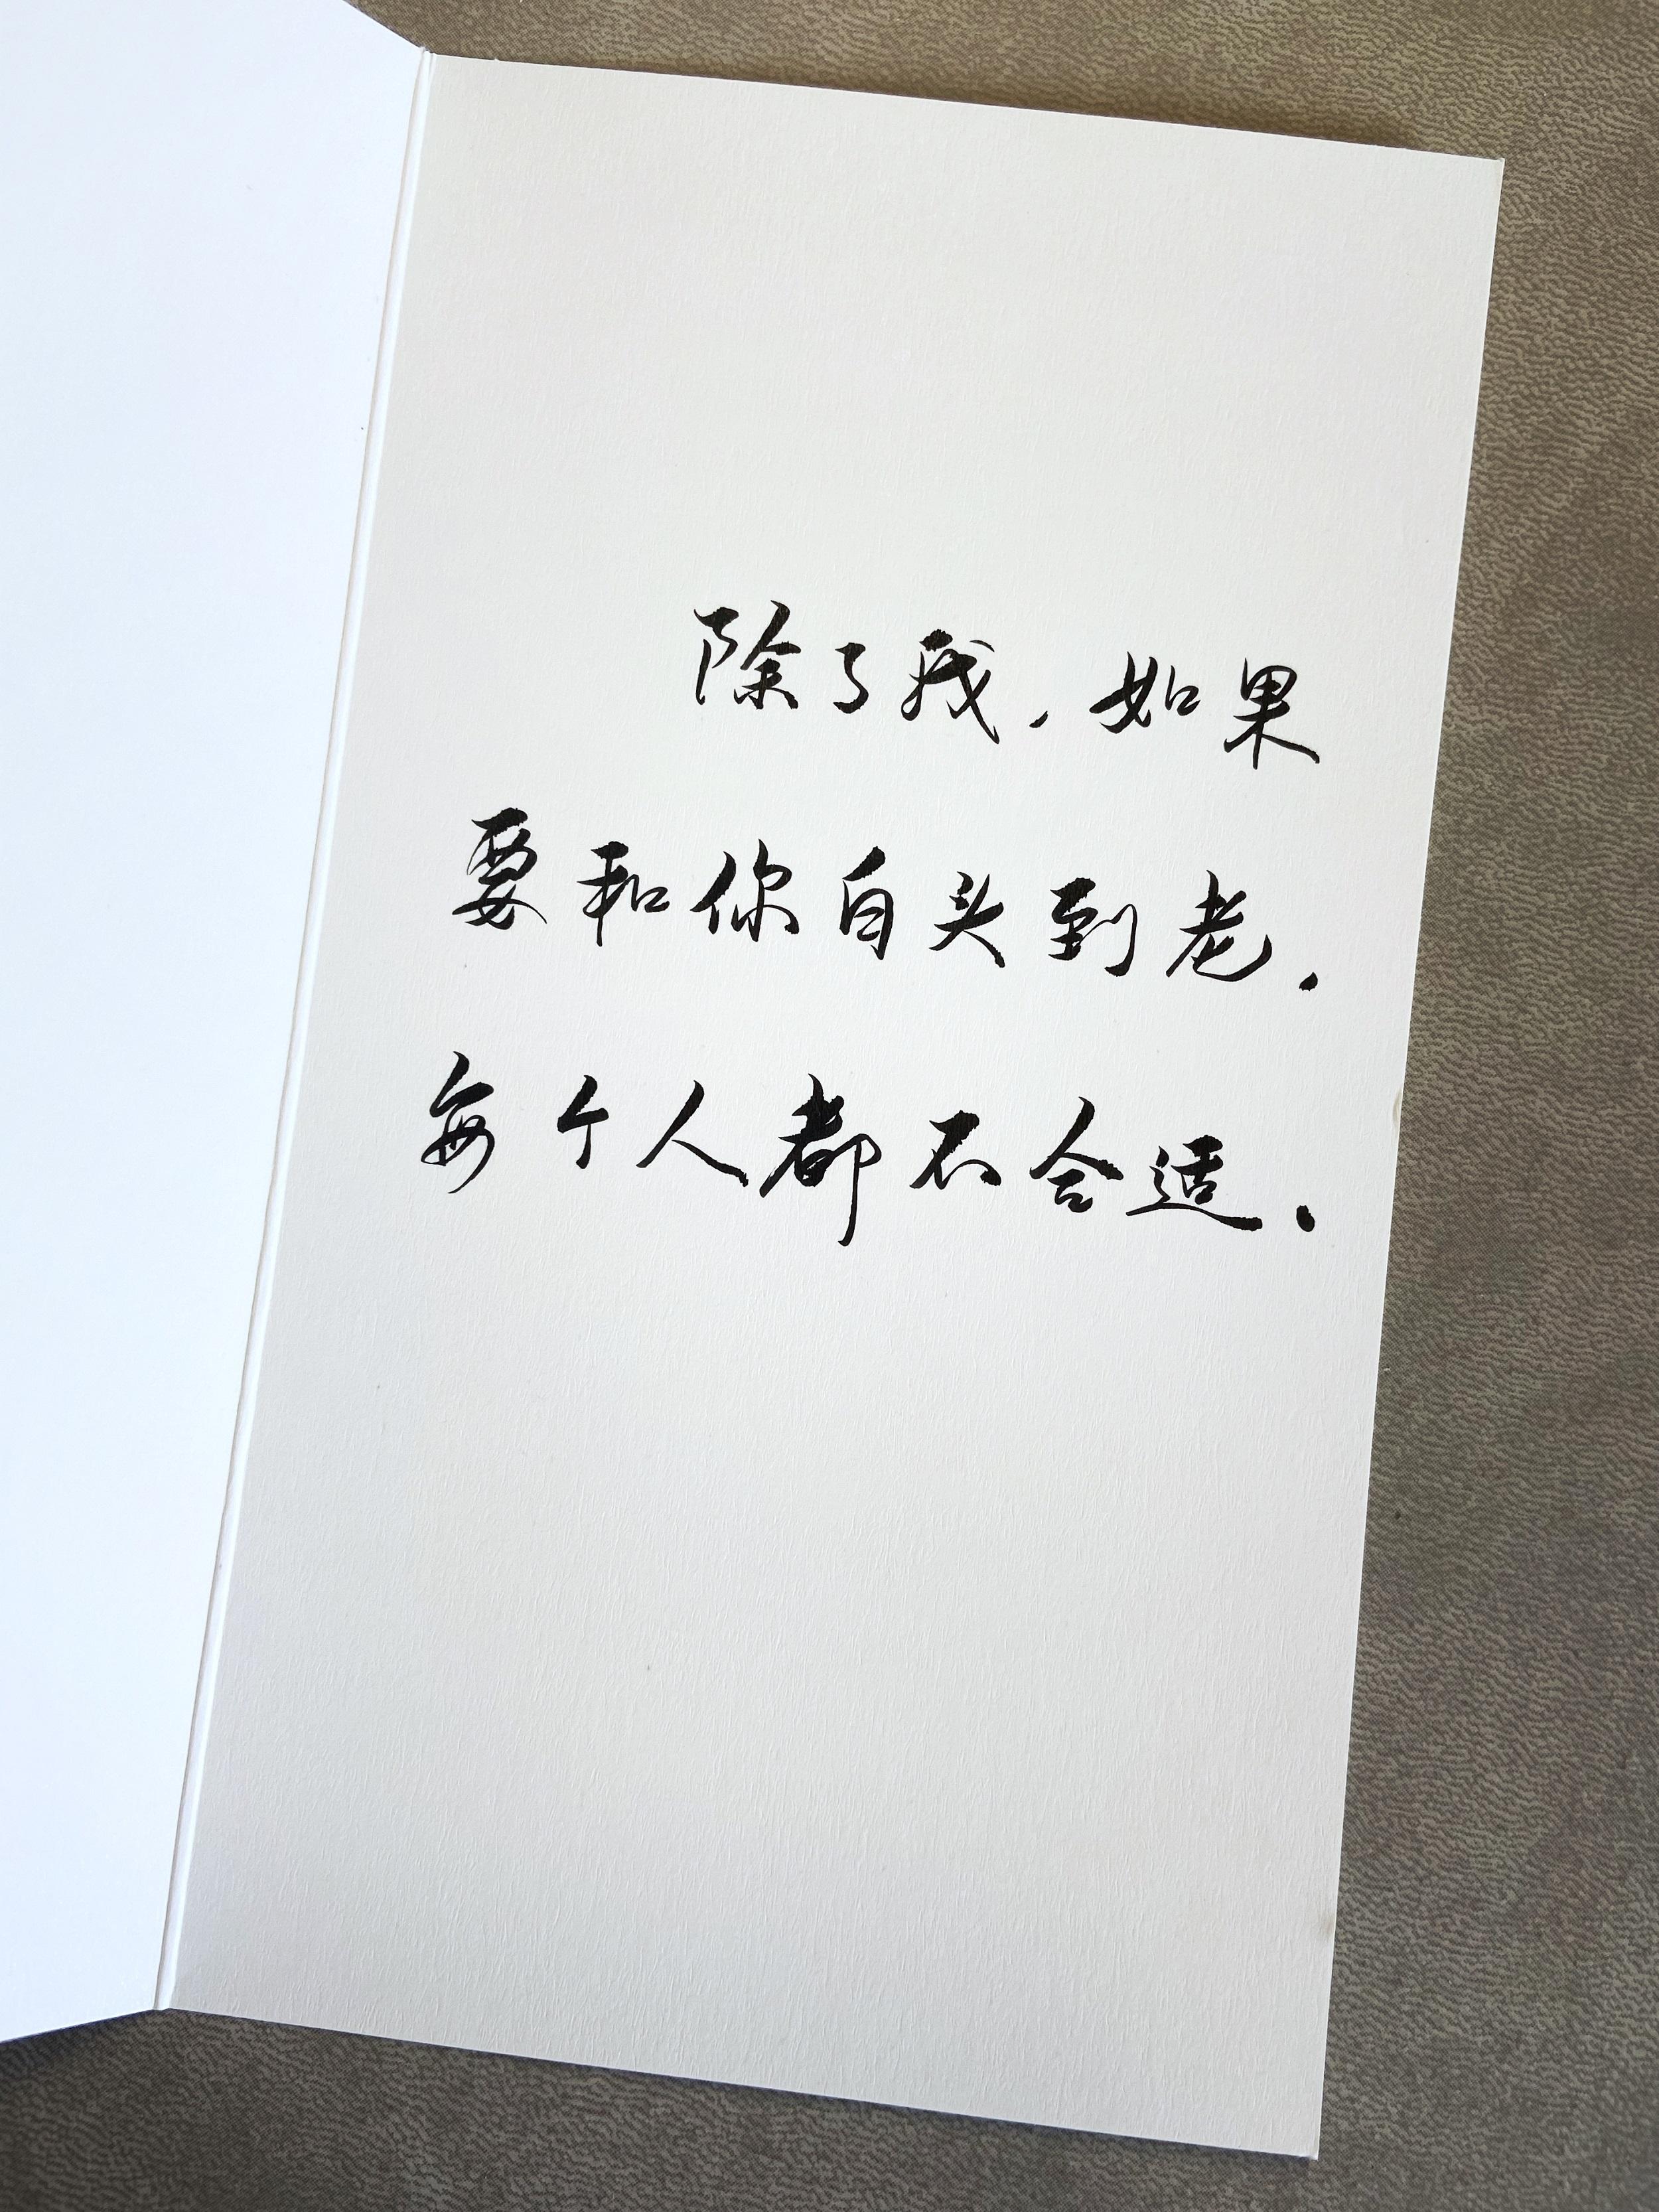 除了我，如果
要和你白头到老．
每个人都不合适．